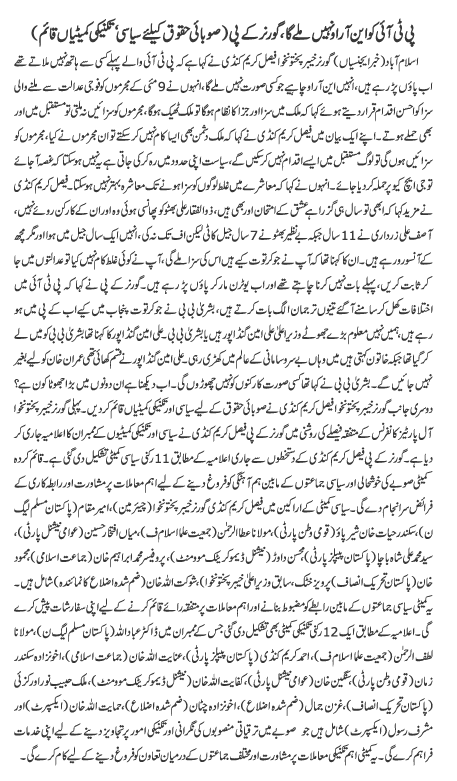 پی ٹی آئی کو این آر او نہیں ملے گا، گورنر کے پی (صوبائی حقوق کیلئے سیاسی، تکنیکی کمیٹیاں قائم)
اسلام آباد (خبر ایجنسیاں) گورنر خیبر پختونخوا فیصل کریم کنڈی نے کہا ہے کہ پی ٹی آئی والے پہلے کسی سے ہاتھ نہیں ملاتے تھے
اب پاؤں پڑ رہے ہیں، انہیں این آر او چاہیے جو کسی صورت نہیں ملے گا، انہوں نے 9 مئی کے مجرموں کو فوجی عدالت سے ملنے والی
سزا کو احسن اقدام قرار دیتے ہوئے کہا کہ ملک میں سزا اور جزا کا نظام ہوگا تو ملک ٹھیک ہوگا، مجرموں کو سزائیں نہ ملتی تو مستقبل میں اور
بھی حملے ہوتے۔ اپنے ایک بیان میں فیصل کریم کنڈی نے کہا کہ ملک دشمن بھی ایسا کام نہیں کر سکتے تو ان مجرموں کو
سزائیں ہوں گی تو لوگ مستقبل میں ایسے اقدام نہیں کر سکیں گے، سیاست اپنی حدود میں رہ کر کی جاتی ہے یہ نہیں ہوسکتا کہ غصہ آجائے
تو جی ایچ کیو پر حملہ کر دیا جائے۔ انہوں نے کہا کہ معاشرے میں غلط لوگوں کو سزا ہونے تک معاشرہ بہتر نہیں ہوسکتا۔ فیصل کریم کنڈی
نے مزید کہا کہ ابھی تو سال ہی گزرا ہے عشق کے امتحان اور بھی ہیں، ذوالفقار علی بھٹو کو پھانسی ہوئی وہ اور ان کے کارکن روئے نہیں،
آصف علی زرداری نے 11 سال جبکہ بے نظیر بھٹو نے 7 سال جیل کاٹی لیکن اف تک نہ کی، انہیں ایک سال جیل میں ہوا اور مگرمچھ
کے آنسو رو رہے ہیں۔ ان کا کہنا تھا کہ آپ نے جو کرتوت کیے ہیں اس کی سزا ملے گی، آپ نے کوئی غلط کام نہیں کیا تو عدالتوں میں جا
کر ثابت کریں، پہلے بات نہیں کرنا چاہتے تھے اور اب یوٹرن مار کر پاؤں پڑ رہے ہیں۔ گورنر کے پی نے کہا کہ پی ٹی آئی میں
اختلافات کھل کر سامنے آگئے تینوں ترجمان الگ بات کرتے ہیں، بشریٰ بی بی نے جو کرتوت پنجاب میں کیے اب کے پی میں ہو
رہے ہیں، ہمیں نہیں معلوم بڑے چھوٹے وزیراعلیٰ علی امین گنڈاپور ہیں یا بشریٰ بی بی۔ علی امین گنڈاپور کا کہنا تھا بشریٰ بی بی کو میں لے
کر گیا تھا جبکہ خاتون کہتی ہیں میں وہاں بے سروسامانی کے عالم میں کھڑی رہی۔ علی امین گنڈاپور نے قسم کھائی تھی عمران خان کو لیے بغیر
نہیں جائیں گے۔ بشریٰ بی بی نے کہا تھا کسی صورت کارکنوں کو نہیں چھوڑوں گی۔ اب دیکھنا ہے ان دونوں میں بڑا جھوٹا کون ہے؟
دوسری جانب گورنر خیبر پختونخوا فیصل کریم کنڈی نے صوبائی حقوق کے لیے سیاسی اور تکنیکی کمیٹیاں قائم کر دیں۔ پہلی گورنر خیبر پختونخوا
آل پارٹیز کانفرنس کے متفقہ فیصلے کی روشنی میں گورنر کے پی فیصل کریم کنڈی نے سیاسی اور تکنیکی کمیٹیوں کے ممبران کا اعلامیہ جاری کر
دیا ہے۔ گورنر کے پی فیصل کریم کنڈی کے دستخطوں سے جاری اعلامیہ کے مطابق 11 رکنی سیاسی کمیٹی تشکیل دی گئی ہے۔ قائم کردہ
کمیٹی صوبے کی خوشحالی اور سیاسی جماعتوں کے مابین ہم آہنگی کو فروغ دینے کے لیے اہم معاملات پر مشاورت اور رابطہ کاری کے
فرائض سر انجام دے گی۔ سیاسی کمیٹی کے اراکین میں فیصل کریم کنڈی گورنر خیبر پختونخوا (چیئرمین)، امیر مقام (پاکستان مسلم لیگ
ن)، سکندر حیات خان شیرپاؤ (قومی وطن پارٹی)، مولانا عطاالرحمٰن (جمعیت علما اسلام ف)، میاں افتخار حسین (عوامی نیشنل پارٹی)،
سید محمد علی شاہ باچا (پاکستان پیپلز پارٹی)، محسن داوڑ (نیشنل ڈیموکریٹک موومنٹ)، پروفیسر محمد ابراہیم خان (جماعت اسلامی)، محمود
خان (پاکستان تحریک انصاف) پرویز خٹک، سابق وزیراعلیٰ خیبر پختونخوا، شوکت اللہ خان (ضم شدہ اضلاع کا نمائندہ) شامل ہیں۔
یہ کمیٹی سیاسی جماعتوں کے مابین رابطے کو مضبوط بنانے اور اہم معاملات پر متفقہ رائے قائم کرنے کے لیے اپنی سفارشات پیش کرے
گی۔ اعلامیہ کے مطابق ایک 12 رکنی تکنیکی کمیٹی بھی تشکیل دی گئی جس کے ممبران میں ڈاکٹر عباداللہ (پاکستان مسلم لیگ ن)، مولانا
لطف الرحمٰن (جمعیت علما اسلام ف)، احمد کریم کنڈی (پاکستان پیپلز پارٹی)، عنایت اللہ خان (جماعت اسلامی)، اخونزادہ سکندر
زمان (قومی وطن پارٹی)، سنگین خان (عوامی نیشنل پارٹی)، کفایت اللہ خان (نیشنل ڈیموکریٹک موومنٹ)، ملک حبیب نور اورکزئی
(پاکستان تحریک انصاف)، غزن جمال (ضم شدہ اضلاع)، اخونزادہ چٹان (ضم شدہ اضلاع)، محمود خان (ایکسپرٹ) اور
مشرف رسول (ایکسپرٹ) شامل ہیں جو صوبے میں ترقیاتی منصوبوں کی نگرانی اور تکنیکی امور پر تجاویز دینے کے لیے اپنی خدمات
فراہم کرے گی۔ یہ کمیٹی اہم تکنیکی معاملات پر مشاورت اور مختلف جماعتوں کے درمیان تعاون کو فروغ دینے کے لیے کام کرے گی۔